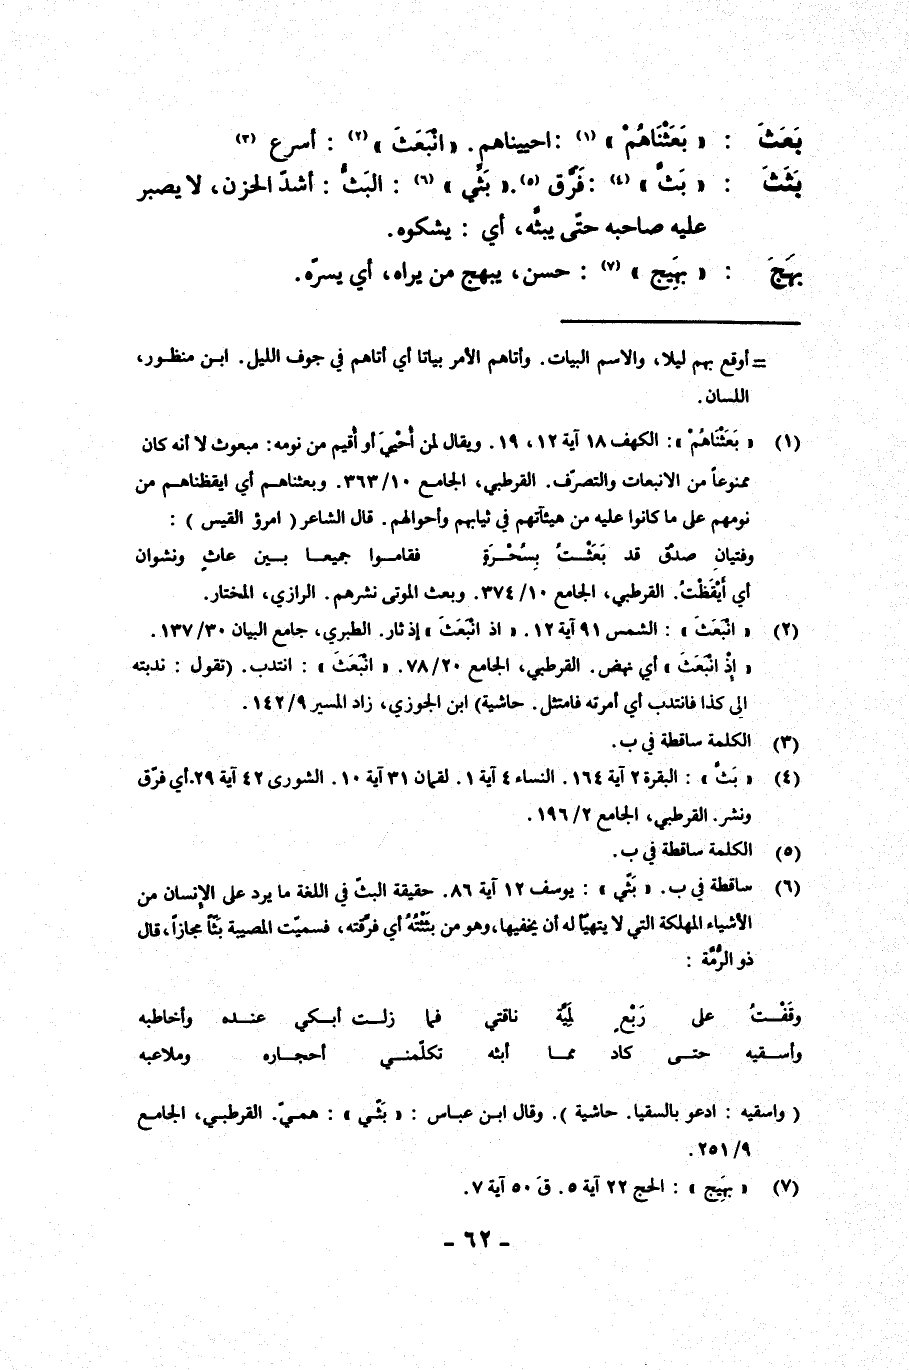 بَعَثَ : « بَعَثْنَاهُمْ » (١) : احييناهم. « انْبَعَثَ » (٢) : أسرع (٣)
بَثَثَ : « بَثَّ » (٤) : فَرَّق (٥). « بَثِّي » (٦) : البَثُّ : أشدّ الحزن، لا يصبر
عليه صاحبه حتّى يبثَّه، أي : يشكوه.
بَهَجَ : « بَهِيج » (٧) : حسن، يبهج من يراه، أي يسرّه.
= أوقع بهم ليلا، والاسم البيات. وأتاهم الأمر بياتا أي أتاهم في جوف الليل. ابن منظور،
اللسان.
(١) « بَعَثْنَاهُمْ »: الكهف ١٨ آية ١٢، ١٩. ويقال لمن أُحْيِيَ أو أُقيم من نومه: مبعوث لا أنه كان
ممنوعاً من الانبعاث والتصرّف. القرطبي، الجامع ١٠/ ٣٦٣. وبعثناهم أي ايقظناهم من
نومهم على ما كانوا عليه من هيئآتهم في ثيابهم وأحوالهم. قال الشاعر ( امرؤ القيس ) :
وفتيانِ صدقٍ قد بَعَثْتُ بِسُحْرَةٍ فقاموا جميعا بين عاثٍ ونشوان
أي أَيْقَظْتُ. القرطبي، الجامع ١٠/ ٣٧٤. وبعث الموتى نشرهم. الرازي، المختار.
(٢) « انْبَعَثَ » : الشمس ٩١ آية ١٢. « اذ انْبَعَثَ » إذ ثار. الطبري، جامع البيان ٣٠/ ١٣٧.
« إِذْ انْبَعَثَ » أي نهض. القرطبي، الجامع ٢٠/ ٧٨. « انْبَعَثَ » : انتدب. (تقول : ندبته
إلى كذا فانتدب أي أمرته فامتثل. حاشية) ابن الجوزي، زاد المسير ٩/ ١٤٢.
(٣) الكلمة ساقطة في ب.
(٤) « بَثَّ » : البقرة ٢ آية ١٦٤. النساء ٤ آية ١. لقمان ٣١ آية ١٠. الشورى ٤٢ آية ٢٩. أي فرّق
ونشر. القرطبي، الجامع ٢/ ١٩٦.
(٥) الكلمة ساقطة في ب.
(٦) ساقطة في ب. « بَثِّي » : يوسف ١٢ آية ٨٦. حقيقة البثّ في اللغة ما يرد على الإنسان من
الأشياء المهلكة التي لا يتهيّأ له أن يخفيها، وهو من بثَثْتُهُ أي فرّقته، فسميّت المصيبة بثّاً مجازاً، قال
ذو الرُّمَّة :
وقَفْتُ على رَبْعٍ لِمَيَّة ناقتي فما زلت أبكي عنده وأخاطبه
وأسقيه حتى كاد مما أبثه تكلّمني أحجاره وملاعبه
( واسقيه : ادعو بالسقيا. حاشية ). وقال ابن عباس : « بَثّي » : همّي. القرطبي، الجامع
٩/ ٢٥١.
(٧) « بَهِيج » : الحج ٢٢ آية ٥. قَ ٥٠ آية ٧.
- ٦٢ -